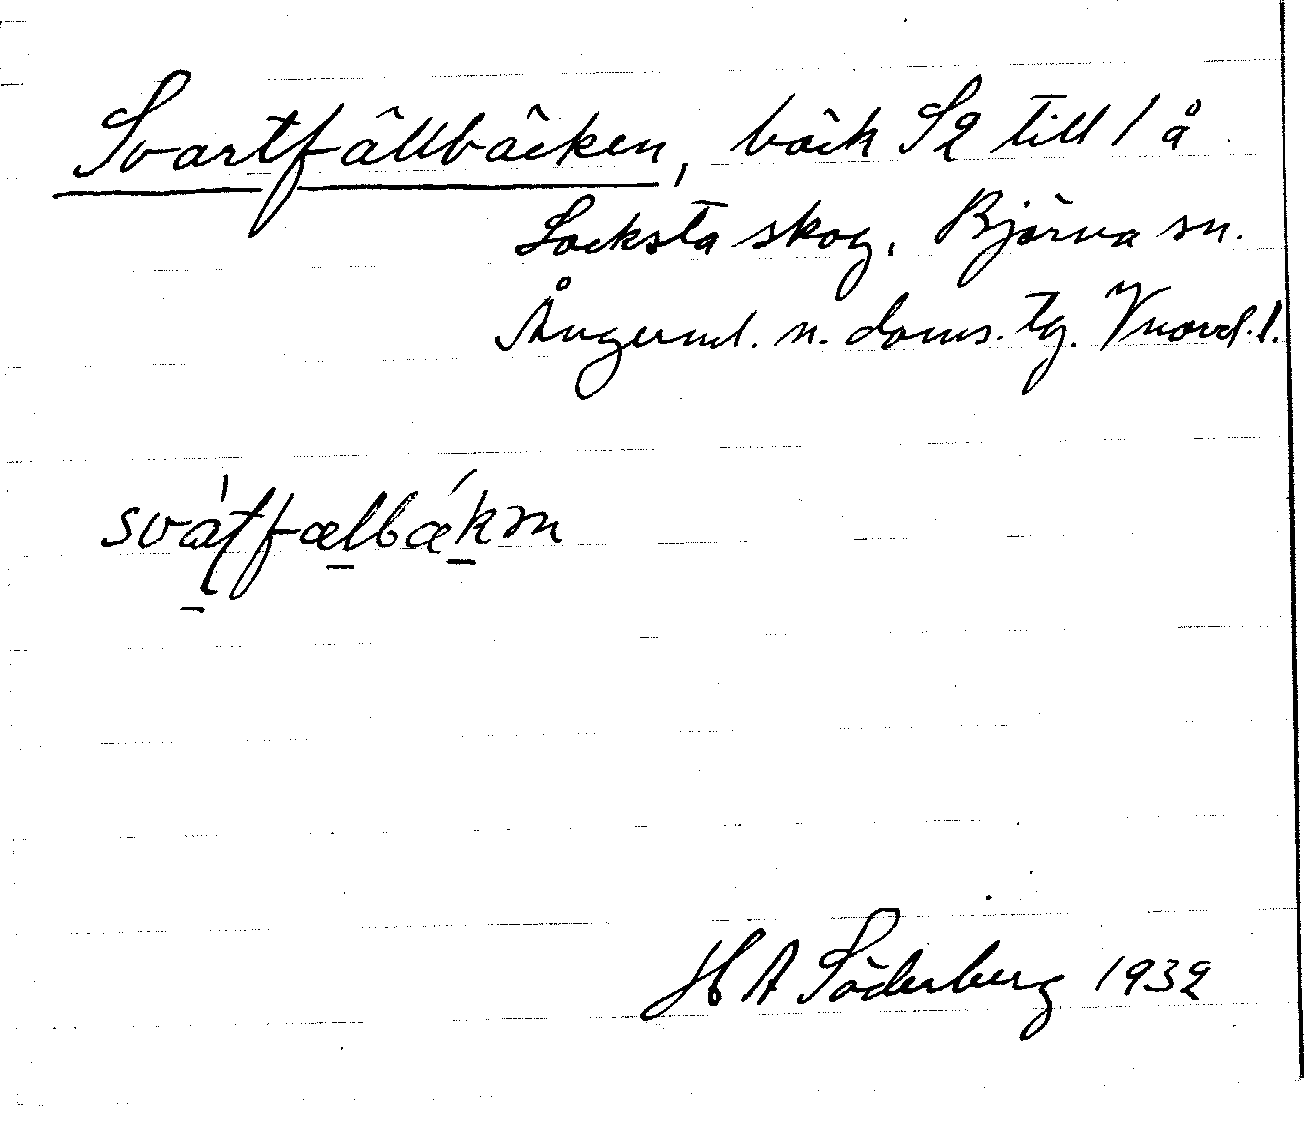 Svartfällbäcken, bäck S2 till 1 å
Locksta skog, Björna sn.
Ångerml. n. doms. tg. Vnorrl. l.
svàt̨fælbækən
H A Söderberg 1932